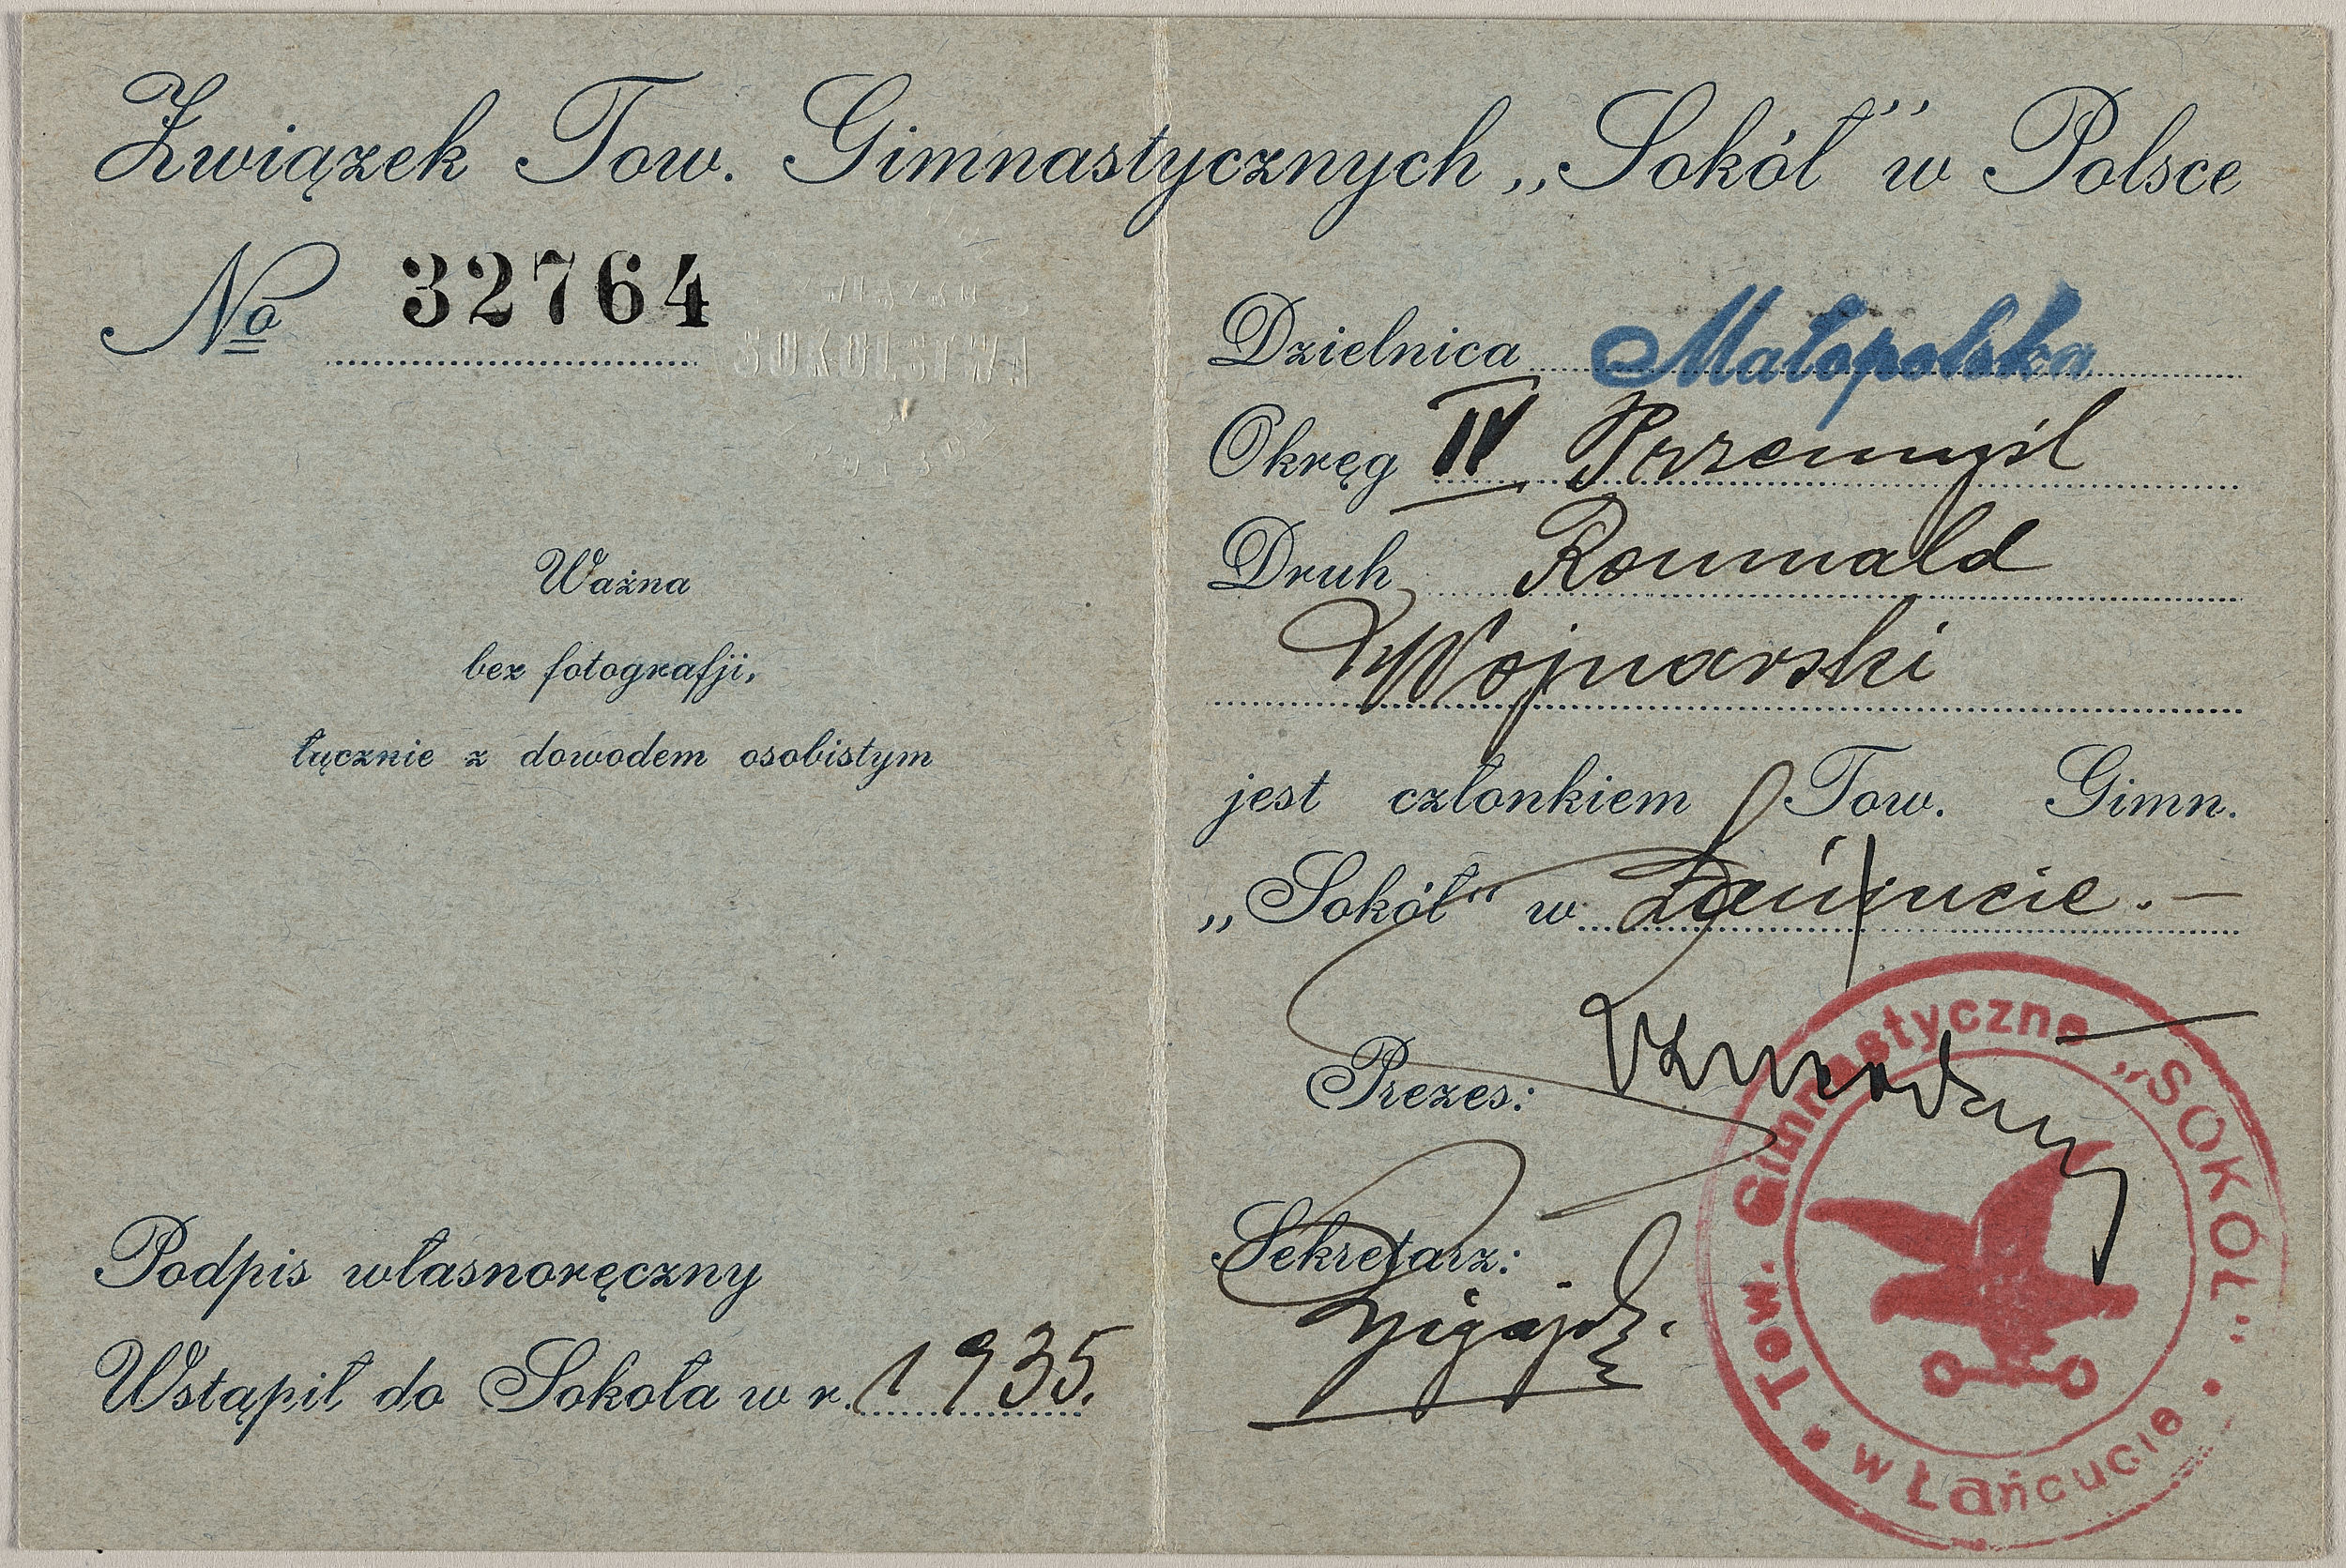 Związek Tow. Gimnastycznych „Sokół” w Polsce
No 32764
Ważna
bez fotografji,
łącznie z dowodem osobistym
Podpis własnoręczny
Wstąpił do Sokoła w r. 1935.
Dzielnica Małopolska
Okręg IV Przemyśl
Druh Romuald
Wojnarski
jest członkiem Tow. Gimn.
„Sokół” w Łańcucie. —
Prezes:
Sekretarz:
Tow. Gimnastyczne „SOKÓŁ”
w Łańcucie